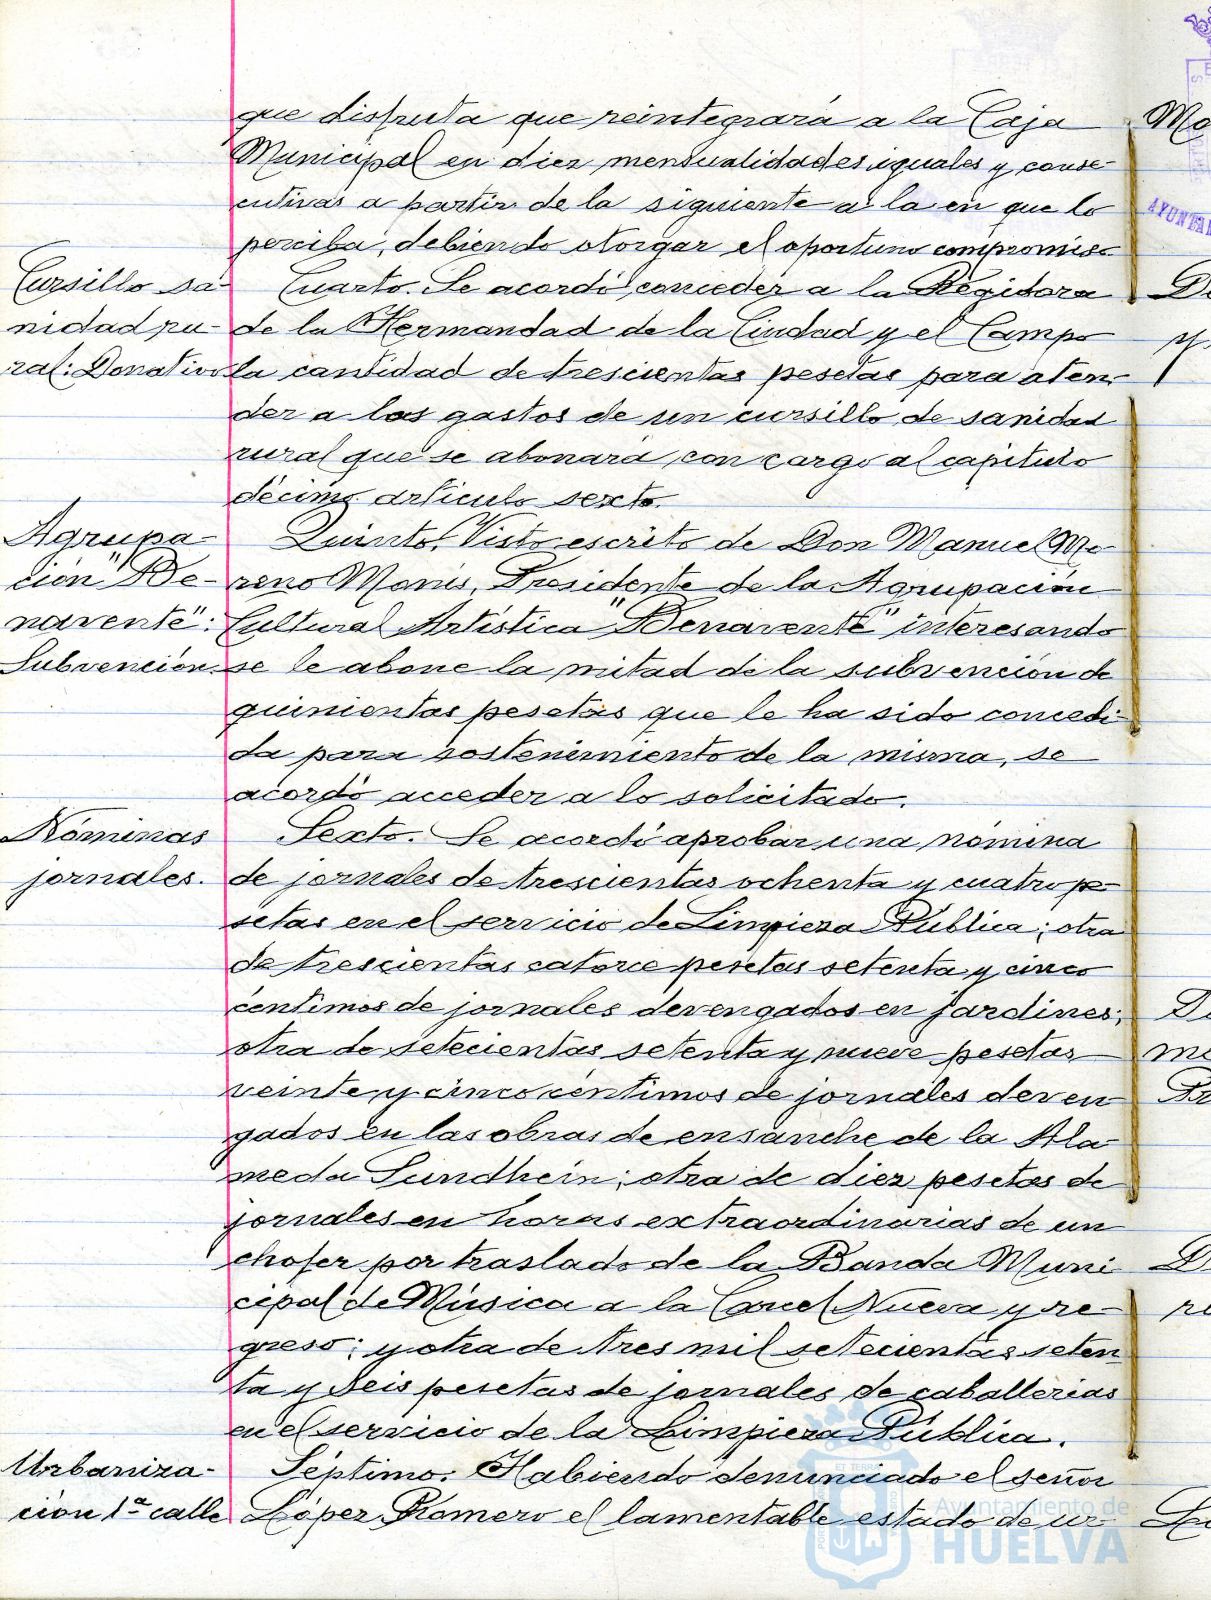 que disfruta que reintegrará a la Caja
Municipal en diez mensualidades iguales y conse-
cutivas a partir de la siguiente a la en que lo
perciba, debiendo otorgar el oportuno compromiso
Cursillo sa-
nidad ru-
ral: Donativo
Cuarto. Se acordó conceder a la Regidora
de la Hermandad de la Ciudad y el Campo
la cantidad de trescientas pesetas para aten-
der a los gastos de un cursillo de sanidad
rural que se abonará con cargo al capítulo
décimo artículo sexto.
Agrupa-
ción "Be-
navente":
Subvención.
Quinto. Visto escrito de Don Manuel Mo-
reno Monís, Presidente de la Agrupación
Cultural Artística "Benavente" interesando
se le abone la mitad de la subvención de
quinientas pesetas que le ha sido concedi-
da para sostenimiento de la misma, se
acordó acceder a lo solicitado.
Nóminas
jornales.
Sexto. Se acordó aprobar una nómina
de jornales de trescientas ochenta y cuatro pe-
setas en el servicio de Limpieza Pública; otra
de trescientas catorce pesetas setenta y cinco
céntimos de jornales devengados en jardines;
otra de setecientas setenta y nueve pesetas
veinte y cinco céntimos de jornales deven
gados en las obras de ensanche de la Ala
meda Sundhein; otra de diez pesetas de
jornales en horas extraordinarias de un
chofer por traslado de la Banda Muni
cipal de Música a la Carcel Nueva y re-
greso; y otra de tres mil setecientas seten
ta y seis pesetas de jornales de caballerias
en el servicio de la Limpieza Pública.
Urbaniza-
ción 1ª calle
Séptimo. Habiendo denunciado el señor
López Romero el lamentable estado de ur-
Ayuntamiento de
HUELVA